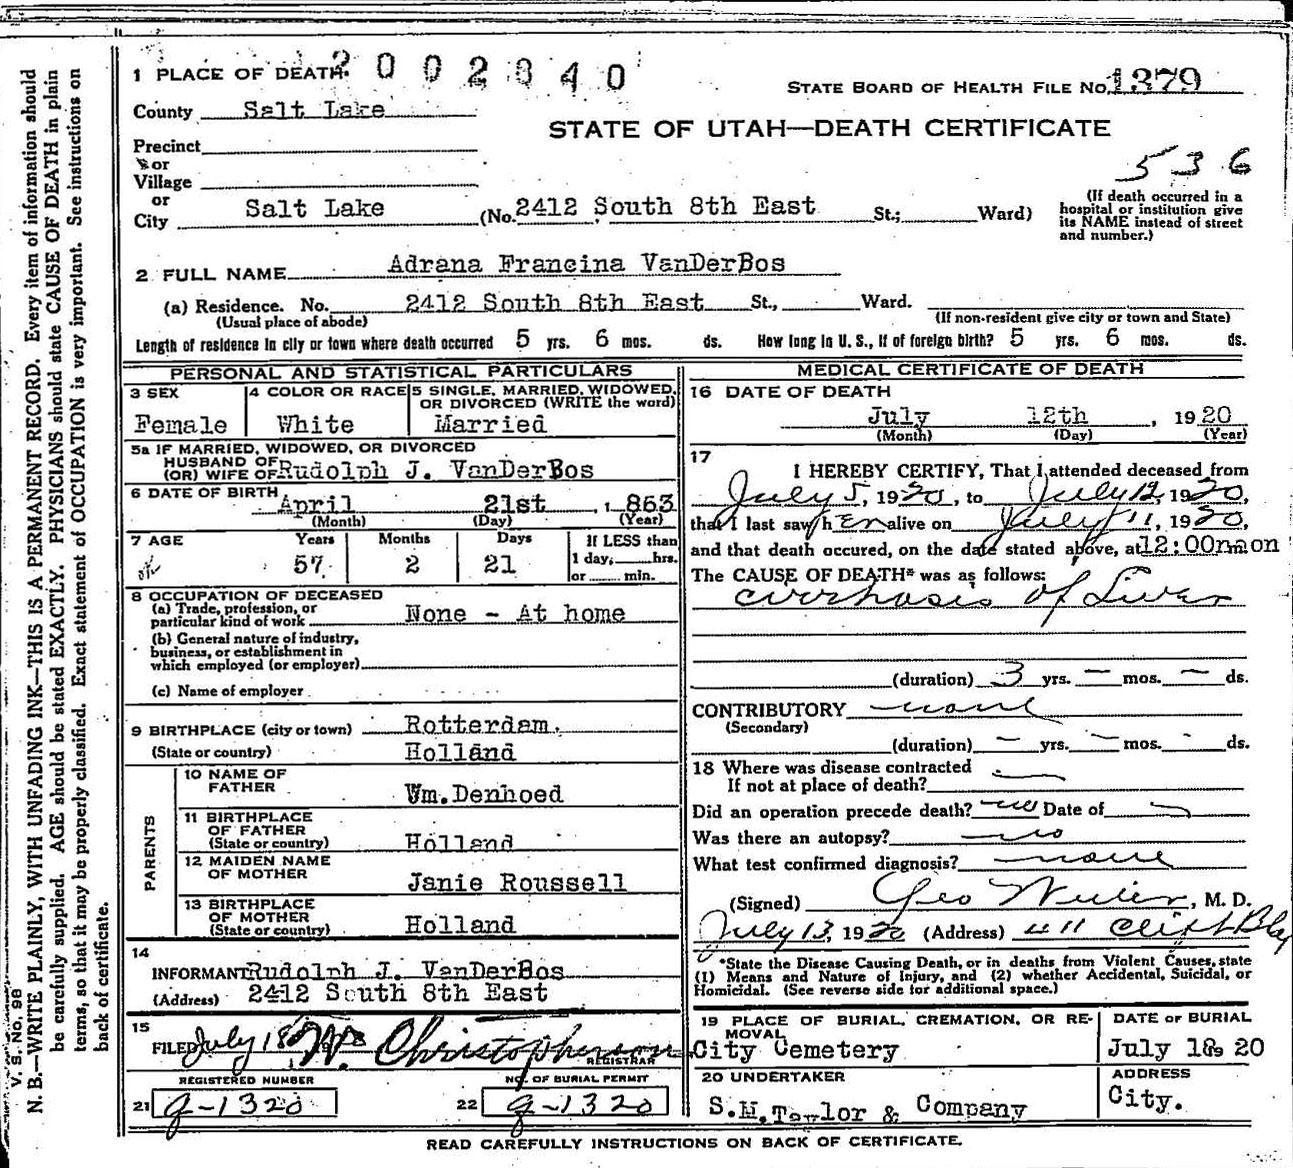 2002840
1 PLACE OF DEATH.
STATE BOARD OF HEALTH FILE No. 1379
County Salt Lake
STATE OF UTAH—DEATH CERTIFICATE
Precinct
or
Village
536
or
City Salt Lake (No. 2412 South 8th East St.; Ward)
(If death occurred in a
hospital or institution give
its NAME instead of street
and number.)
2 FULL NAME Adrana Francina VanDerBos
(a) Residence. No. 2412 South 8th East St., Ward.
(Usual place of abode) (If non-resident give city or town and State)
Length of residence in city or town where death occurred 5 yrs. 6 mos. ds. How long in U. S., if of foreign birth? 5 yrs. 6 mos. ds.
PERSONAL AND STATISTICAL PARTICULARS
3 SEX
Female
4 COLOR OR RACE
White
5 SINGLE, MARRIED, WIDOWED,
OR DIVORCED (WRITE the word)
Married
5a IF MARRIED, WIDOWED, OR DIVORCED
HUSBAND OF
(OR) WIFE OF Rudolph J. VanDerBos
6 DATE OF BIRTH April 21st , 1863
(Month) (Day) (Year)
7 AGE Years Months Days If LESS than
57 2 21 1 day, hrs.
or min.
8 OCCUPATION OF DECEASED
(a) Trade, profession, or
particular kind of work None - At home
(b) General nature of industry,
business, or establishment in
which employed (or employer)
(c) Name of employer
9 BIRTHPLACE (city or town) Rotterdam.
(State or country) Holland
PARENTS
10 NAME OF
FATHER Wm. Denhoed
11 BIRTHPLACE
OF FATHER
(State or country) Holland
12 MAIDEN NAME
OF MOTHER Janie Roussell
13 BIRTHPLACE
OF MOTHER
(State or country) Holland
14
INFORMANT Rudolph J. VanDerBos
(Address) 2412 South 8th East
15
FILED July 18 W. Christopherson
REGISTRAR
REGISTERED NUMBER NO. OF BURIAL PERMIT
21 g-1320 22 g-1320
MEDICAL CERTIFICATE OF DEATH
16 DATE OF DEATH
July 12th , 1920
(Month) (Day) (Year)
17
I HEREBY CERTIFY, That I attended deceased from
July 5, 1920, to July 12, 1920,
that I last saw her alive on July 11, 1920,
and that death occured, on the date stated above, at 12:00 noon
The CAUSE OF DEATH* was as follows:
Cirrhosis of Liver
(duration) 3 yrs. — mos. — ds.
CONTRIBUTORY none
(Secondary)
(duration) — yrs. — mos. - ds.
18 Where was disease contracted
If not at place of death? —
Did an operation precede death? no Date of
Was there an autopsy? no
What test confirmed diagnosis? none
(Signed) Geo , M. D.
July 13, 1920 (Address) 411 Clift Bldg
*State the Disease Causing Death, or in deaths from Violent Causes, state
(1) Means and Nature of Injury, and (2) whether Accidental, Suicidal, or
Homicidal. (See reverse side for additional space.)
19 PLACE OF BURIAL, CREMATION, OR RE-
MOVAL
City Cemetery
DATE OF BURIAL
July 18, 20
20 UNDERTAKER
S.M. Taylor & Company
ADDRESS
City.
READ CAREFULLY INSTRUCTIONS ON BACK OF CERTIFICATE.
V. S. No. 98
N. B.—WRITE PLAINLY, WITH UNFADING INK—THIS IS A PERMANENT RECORD. Every item of information should
be carefully supplied. AGE should be stated EXACTLY. PHYSICIANS should state CAUSE OF DEATH in plain
terms, so that it may be properly classified. Exact statement of OCCUPATION is very important. See instructions on
back of certificate.